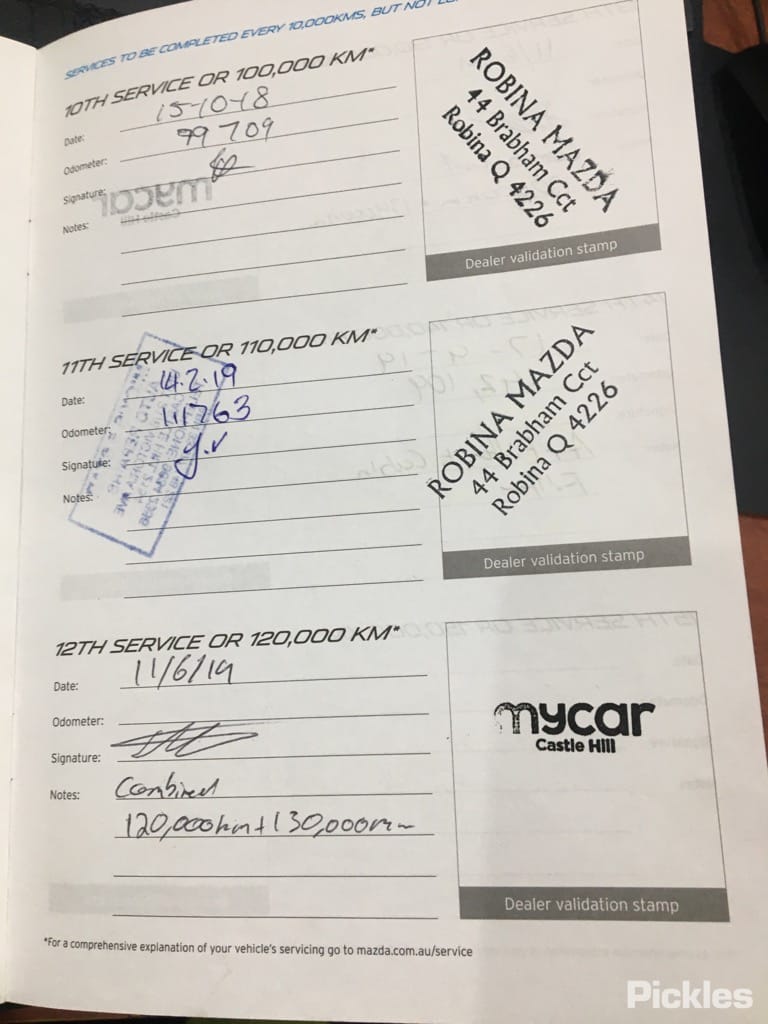 SERVICES TO BE COMPLETED EVERY 10,000KMS, BUT NOT
10TH SERVICE OR 100,000 KM*
Date: 15-10-18
Odometer: 99 709
Signature:
Notes:
ROBINA MAZDA
44 Brabham Cct
Robina Q 4226
Dealer validation stamp
11TH SERVICE OR 110,000 KM*
Date: 14.2.19
Odometer: 111763
Signature:
Notes:
ROBINA MAZDA
44 Brabham Cct
Robina Q 4226
Dealer validation stamp
12TH SERVICE OR 120,000 KM*
Date: 11/6/19
Odometer:
Signature:
Notes: Combined
120,000km + 130,000km
mycar
Castle Hill
Dealer validation stamp
*For a comprehensive explanation of your vehicle's servicing go to mazda.com.au/service
Pickles